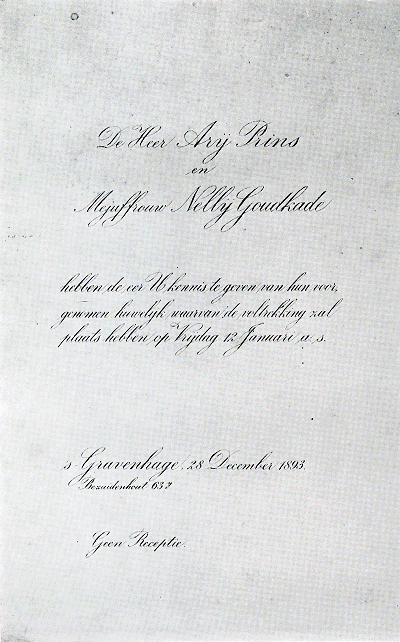 De Heer Arij Prins
en
Mejuffrouw Nellij Goudkade
hebben de eer U kennis te geven van hun voor,
genomen huwelijk waarvan de voltrekking zal
plaats hebben op Vrijdag 12 Januari a. s.
's Gravenhage, 28 December 1893.
Bezuidenhout 63
Geen Receptie.